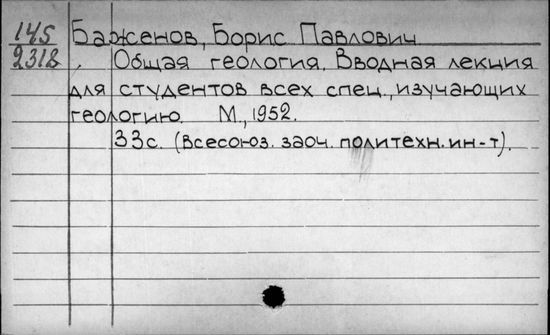 145 Баженов, Борис Павлович
2318 Общая геология. Вводная лекция
для студентов всех спец., изучающих
геологию. М., 1952.
33с. (Всесоюз. заоч. политехн. ин-т).